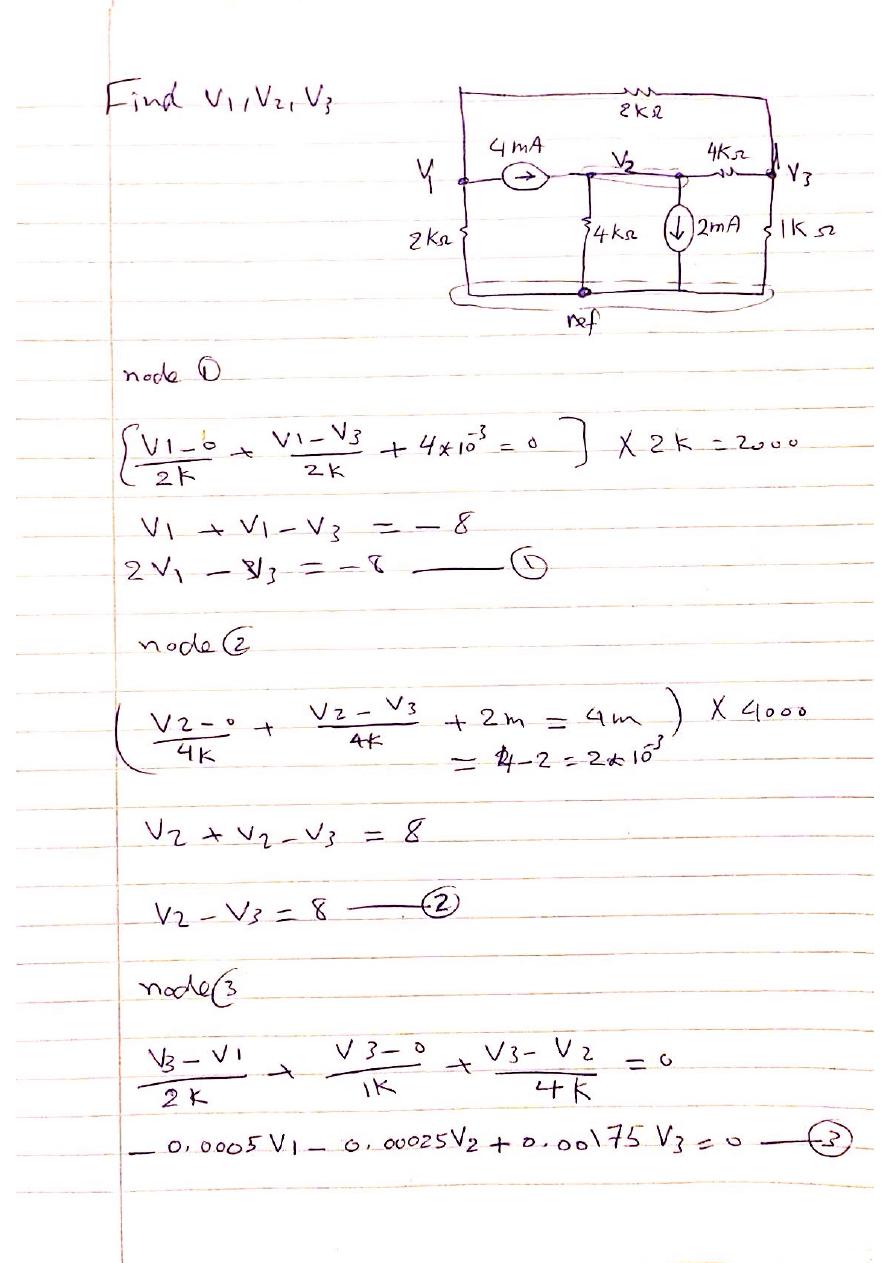 Find V1, V2, V3
2KΩ
4mA
V1
V2
4KΩ
V3
2KΩ
4kΩ
2mA
1KΩ
ref
node ①
[V1-0/2K + V1-V3/2K + 4*10^-3 = 0] X 2K = 2000
V1 + V1 - V3 = -8
2V1 - V3 = -8 — ①
node ②
(V2-0/4K + V2-V3/4K + 2m = 4m) X 4000
= 4-2 = 2*10^-3
V2 + V2 - V3 = 8
V2 - V3 = 8 — ②
node ③
V3-V1/2K + V3-0/1K + V3-V2/4K = 0
- 0.0005V1 - 0.00025V2 + 0.00175V3 = 0 — ③